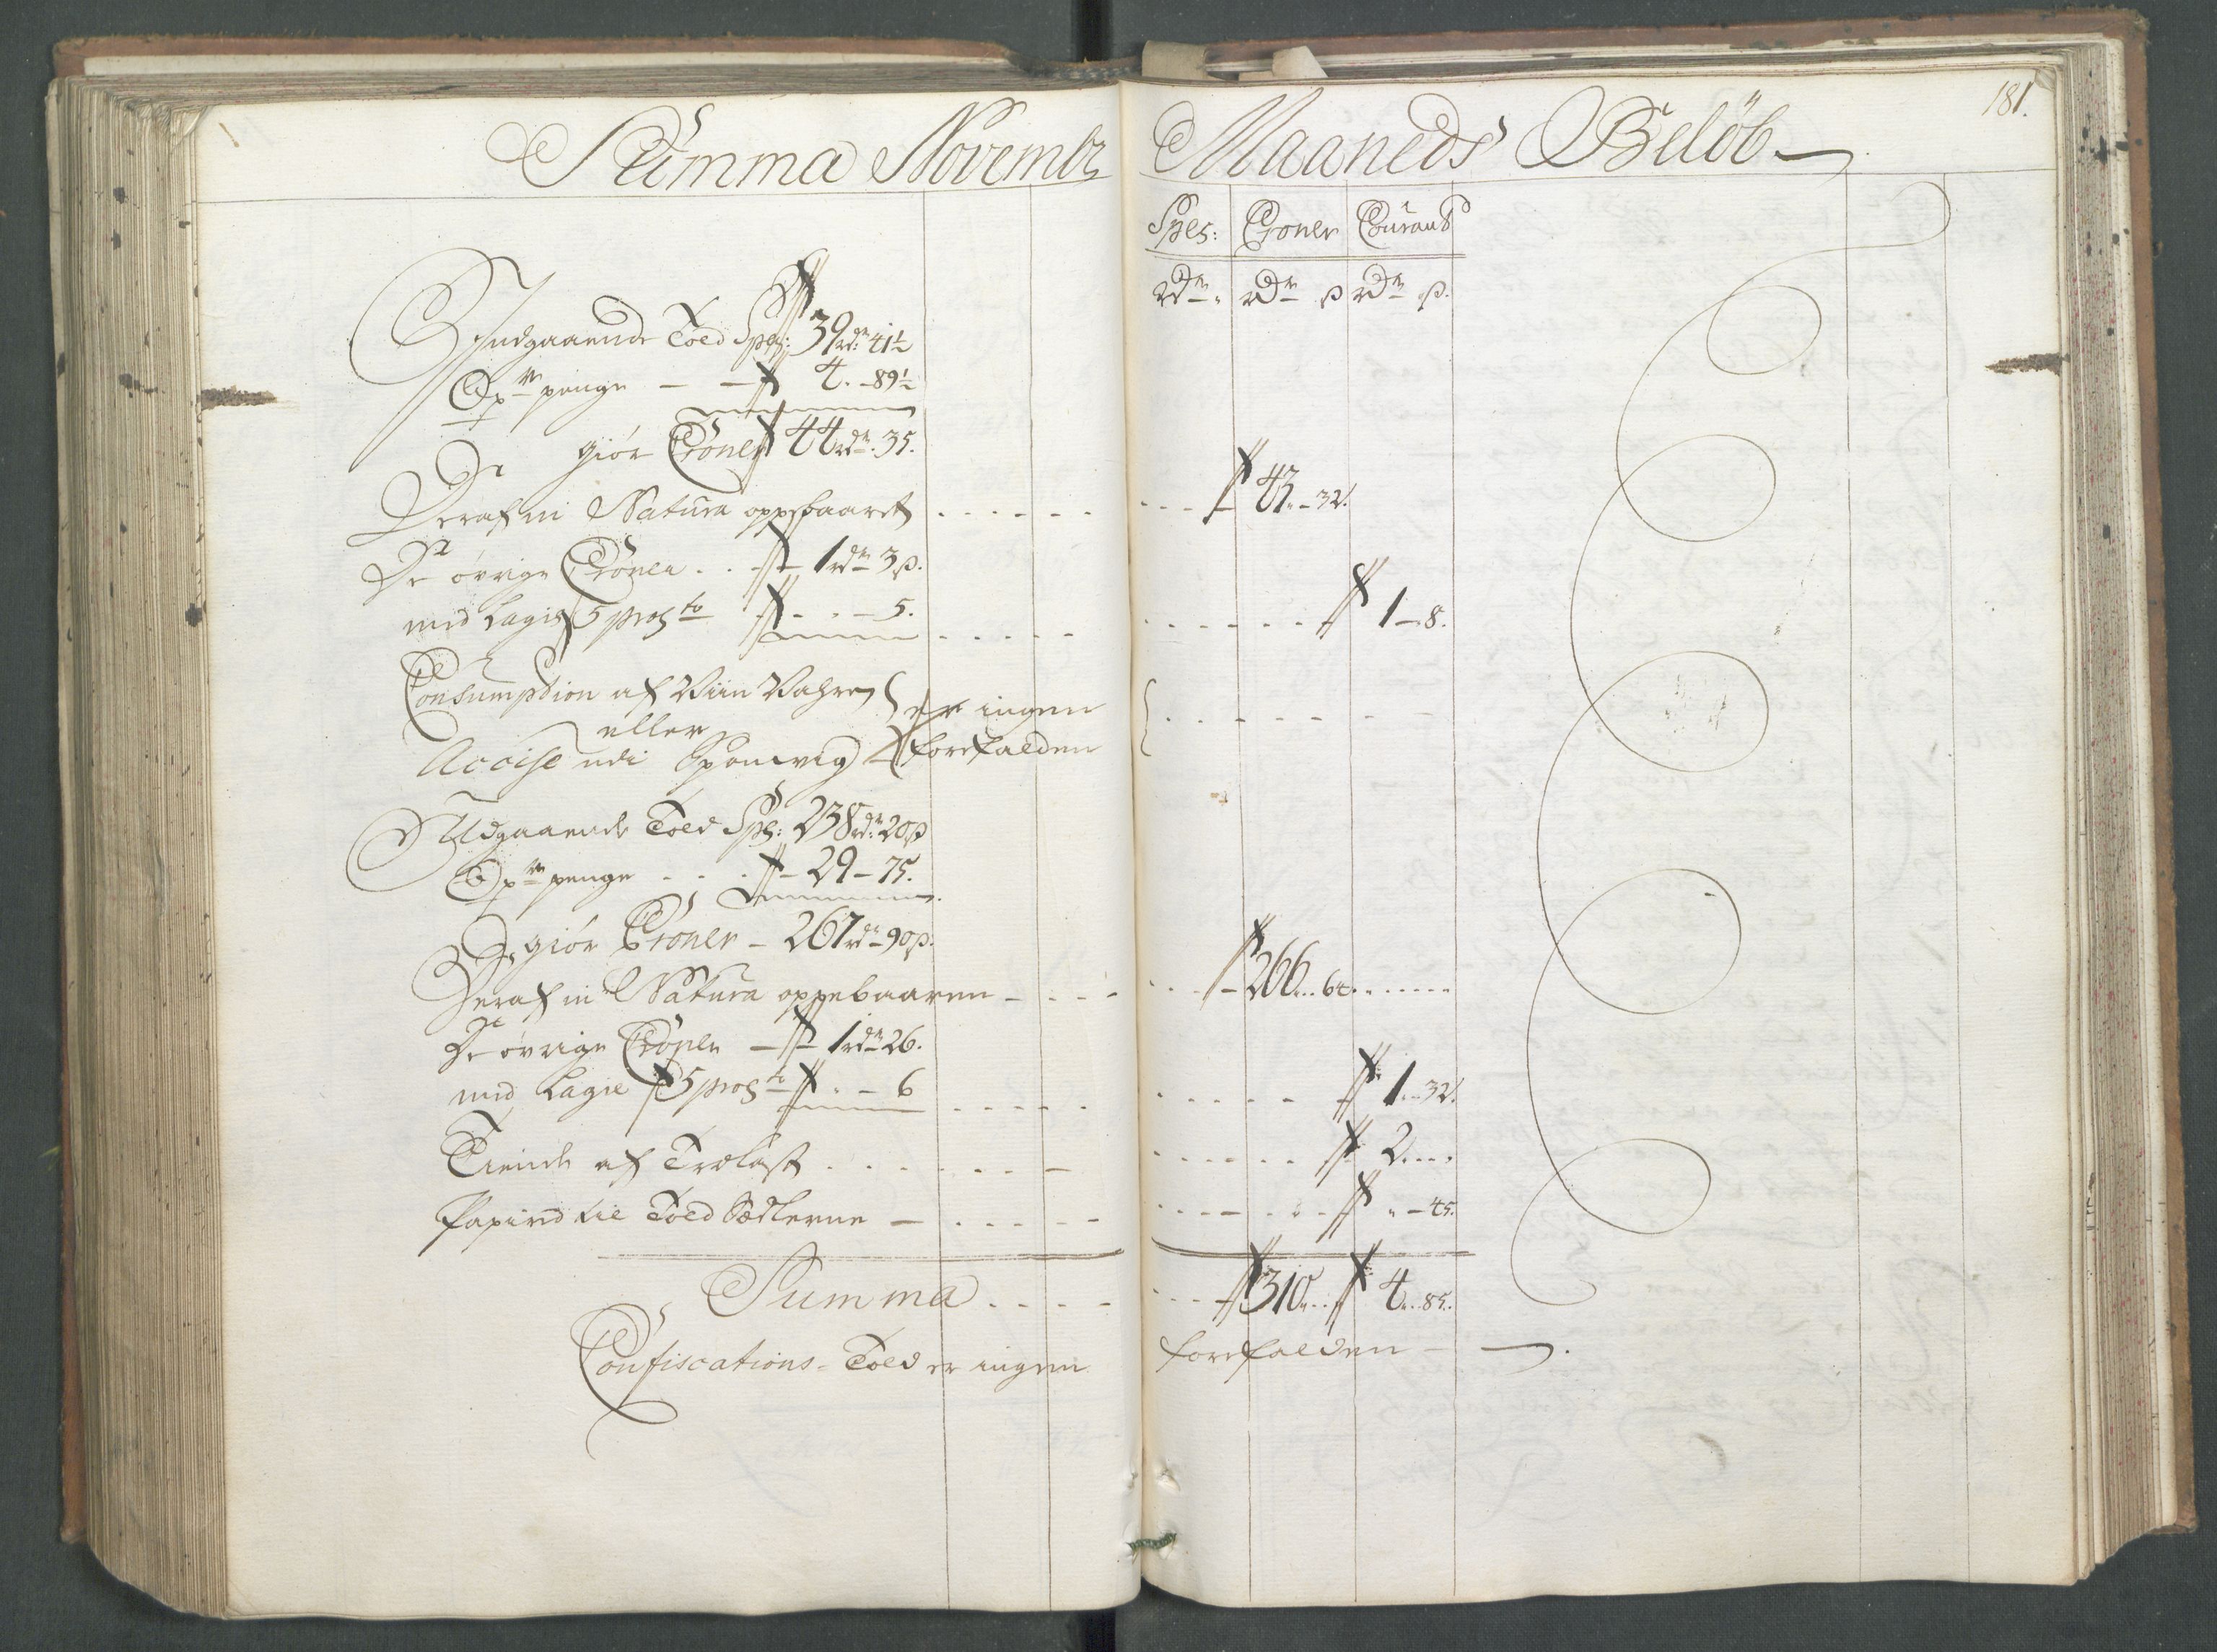 181.
Summa Novembr Maaneds Beløb
Spes: Croner Courant
rdr rdr ß rdr ß.
Indgaaende Told Spes: 39 rdr 41½
Exp penge 4. – 89½
giør Croner 44 rdr. 35.
Deraf in Natura oppebaaret 43. – 32.
De øvrige Croner 1 rdr 3 ß.
med Lagie 5 proCto 5. 1 – 8.
Consumption af Viin Vahre er ingen
eller
Accise udi forefalden
Udgaaende Told Spes: 238 rdr 20 ß
Exp penge 29 – 75.
De giør Croner – 267 rdr – 90 ß.
Deraf in Natura oppebaaren – 266. 64.
De øvrige Croner 1 rdr 26.
med Lagie 5 proCto 6 1. – 32.
Tiende af Trælast 2.
Papiird til Told Sedlerne – 45.
Summa 310. 4. 85.
Confiscations-Told er ingen forefalden